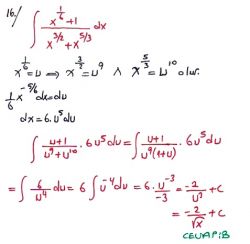 16./ ∫ (x^(1/6)+1)/(x^(3/2)+x^(5/3)) dx
x^(1/6)=u ⇒ x^(3/2)=u^9 ∧ x^(5/3)=u^10 olur.
1/6 x^(-5/6) dx=du
dx=6.u^5 du
∫ (u+1)/(u^9+u^10) . 6u^5 du = ∫ (u+1)/(u^9(1+u)) . 6u^5 du
= ∫ 6/u^4 du = 6 ∫ u^-4 du = 6. u^-3/-3 = -2/u^3 +c
= -2/√x +c
CEVAP:B